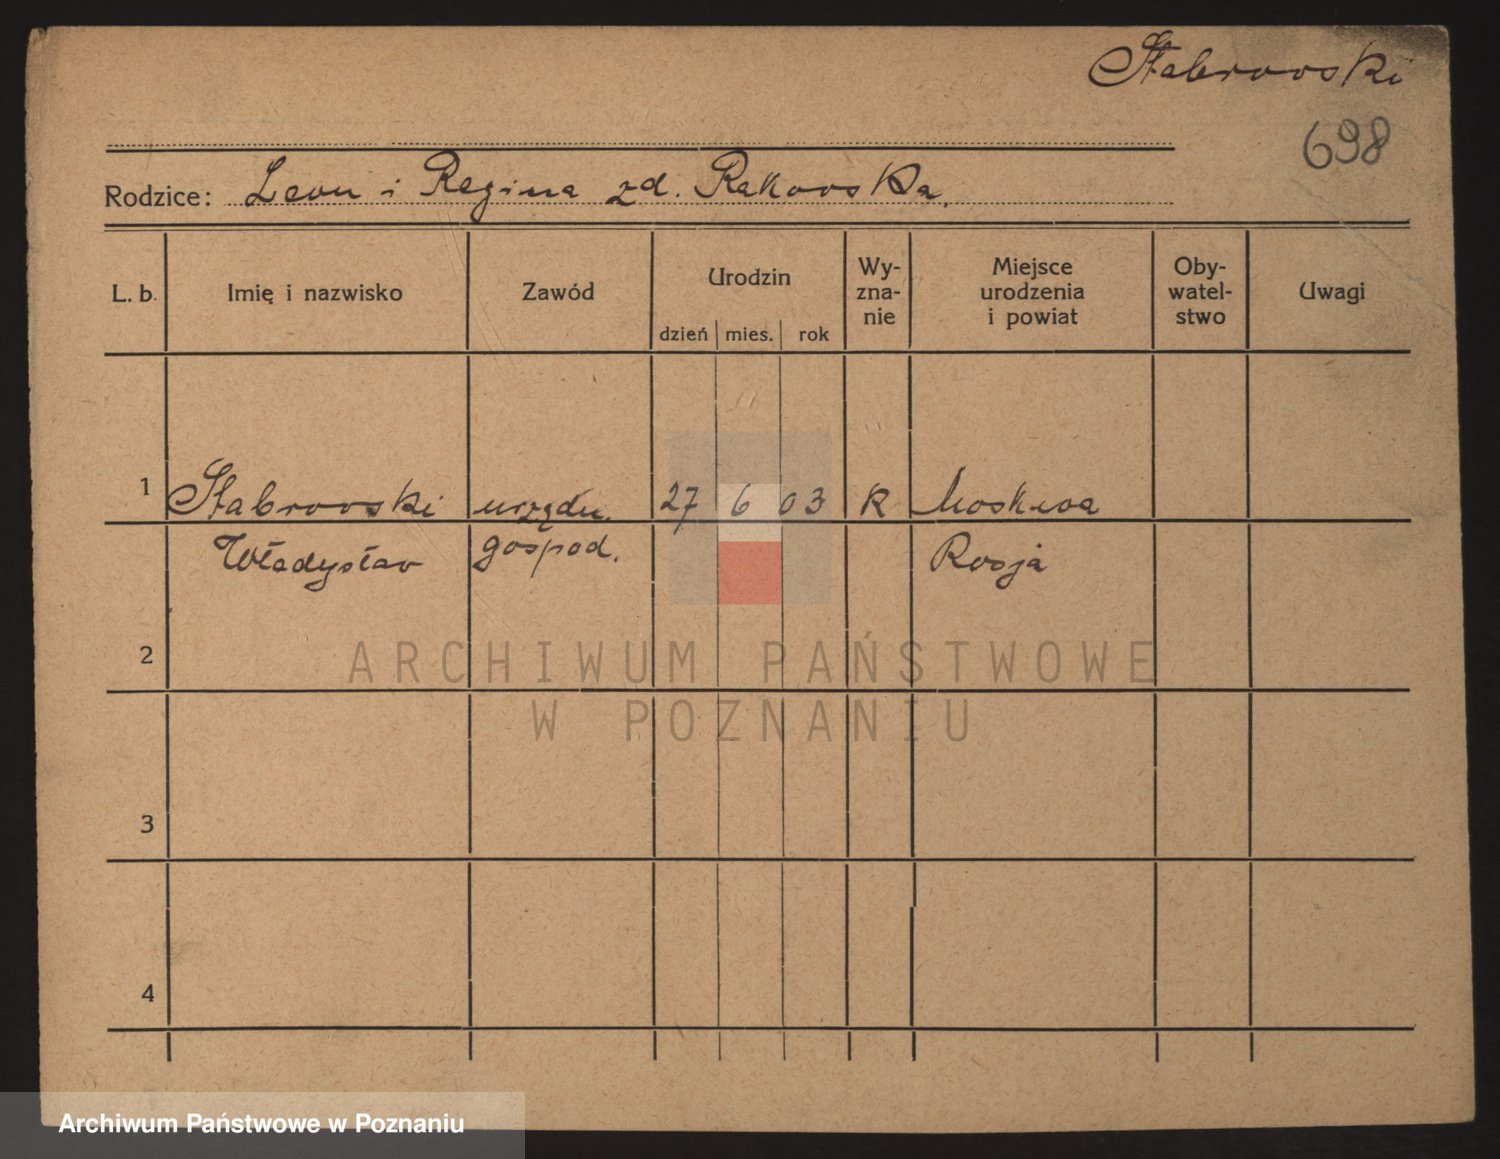 Stabrowski
698
Rodzice: Leon i Regina zd. Rakowska.
L. b. Imię i nazwisko Zawód Urodzin dzień mies. rok Wy- zna- nie Miejsce urodzenia i powiat Oby- watel- stwo Uwagi
1 Stabrowski urzędn. 27 6 03 R Moskwa
Władysław gospod. Rosja
2
ARCHIWUM PAŃSTWOWE
W POZNANIU
3
4
Archiwum Państwowe w Poznaniu